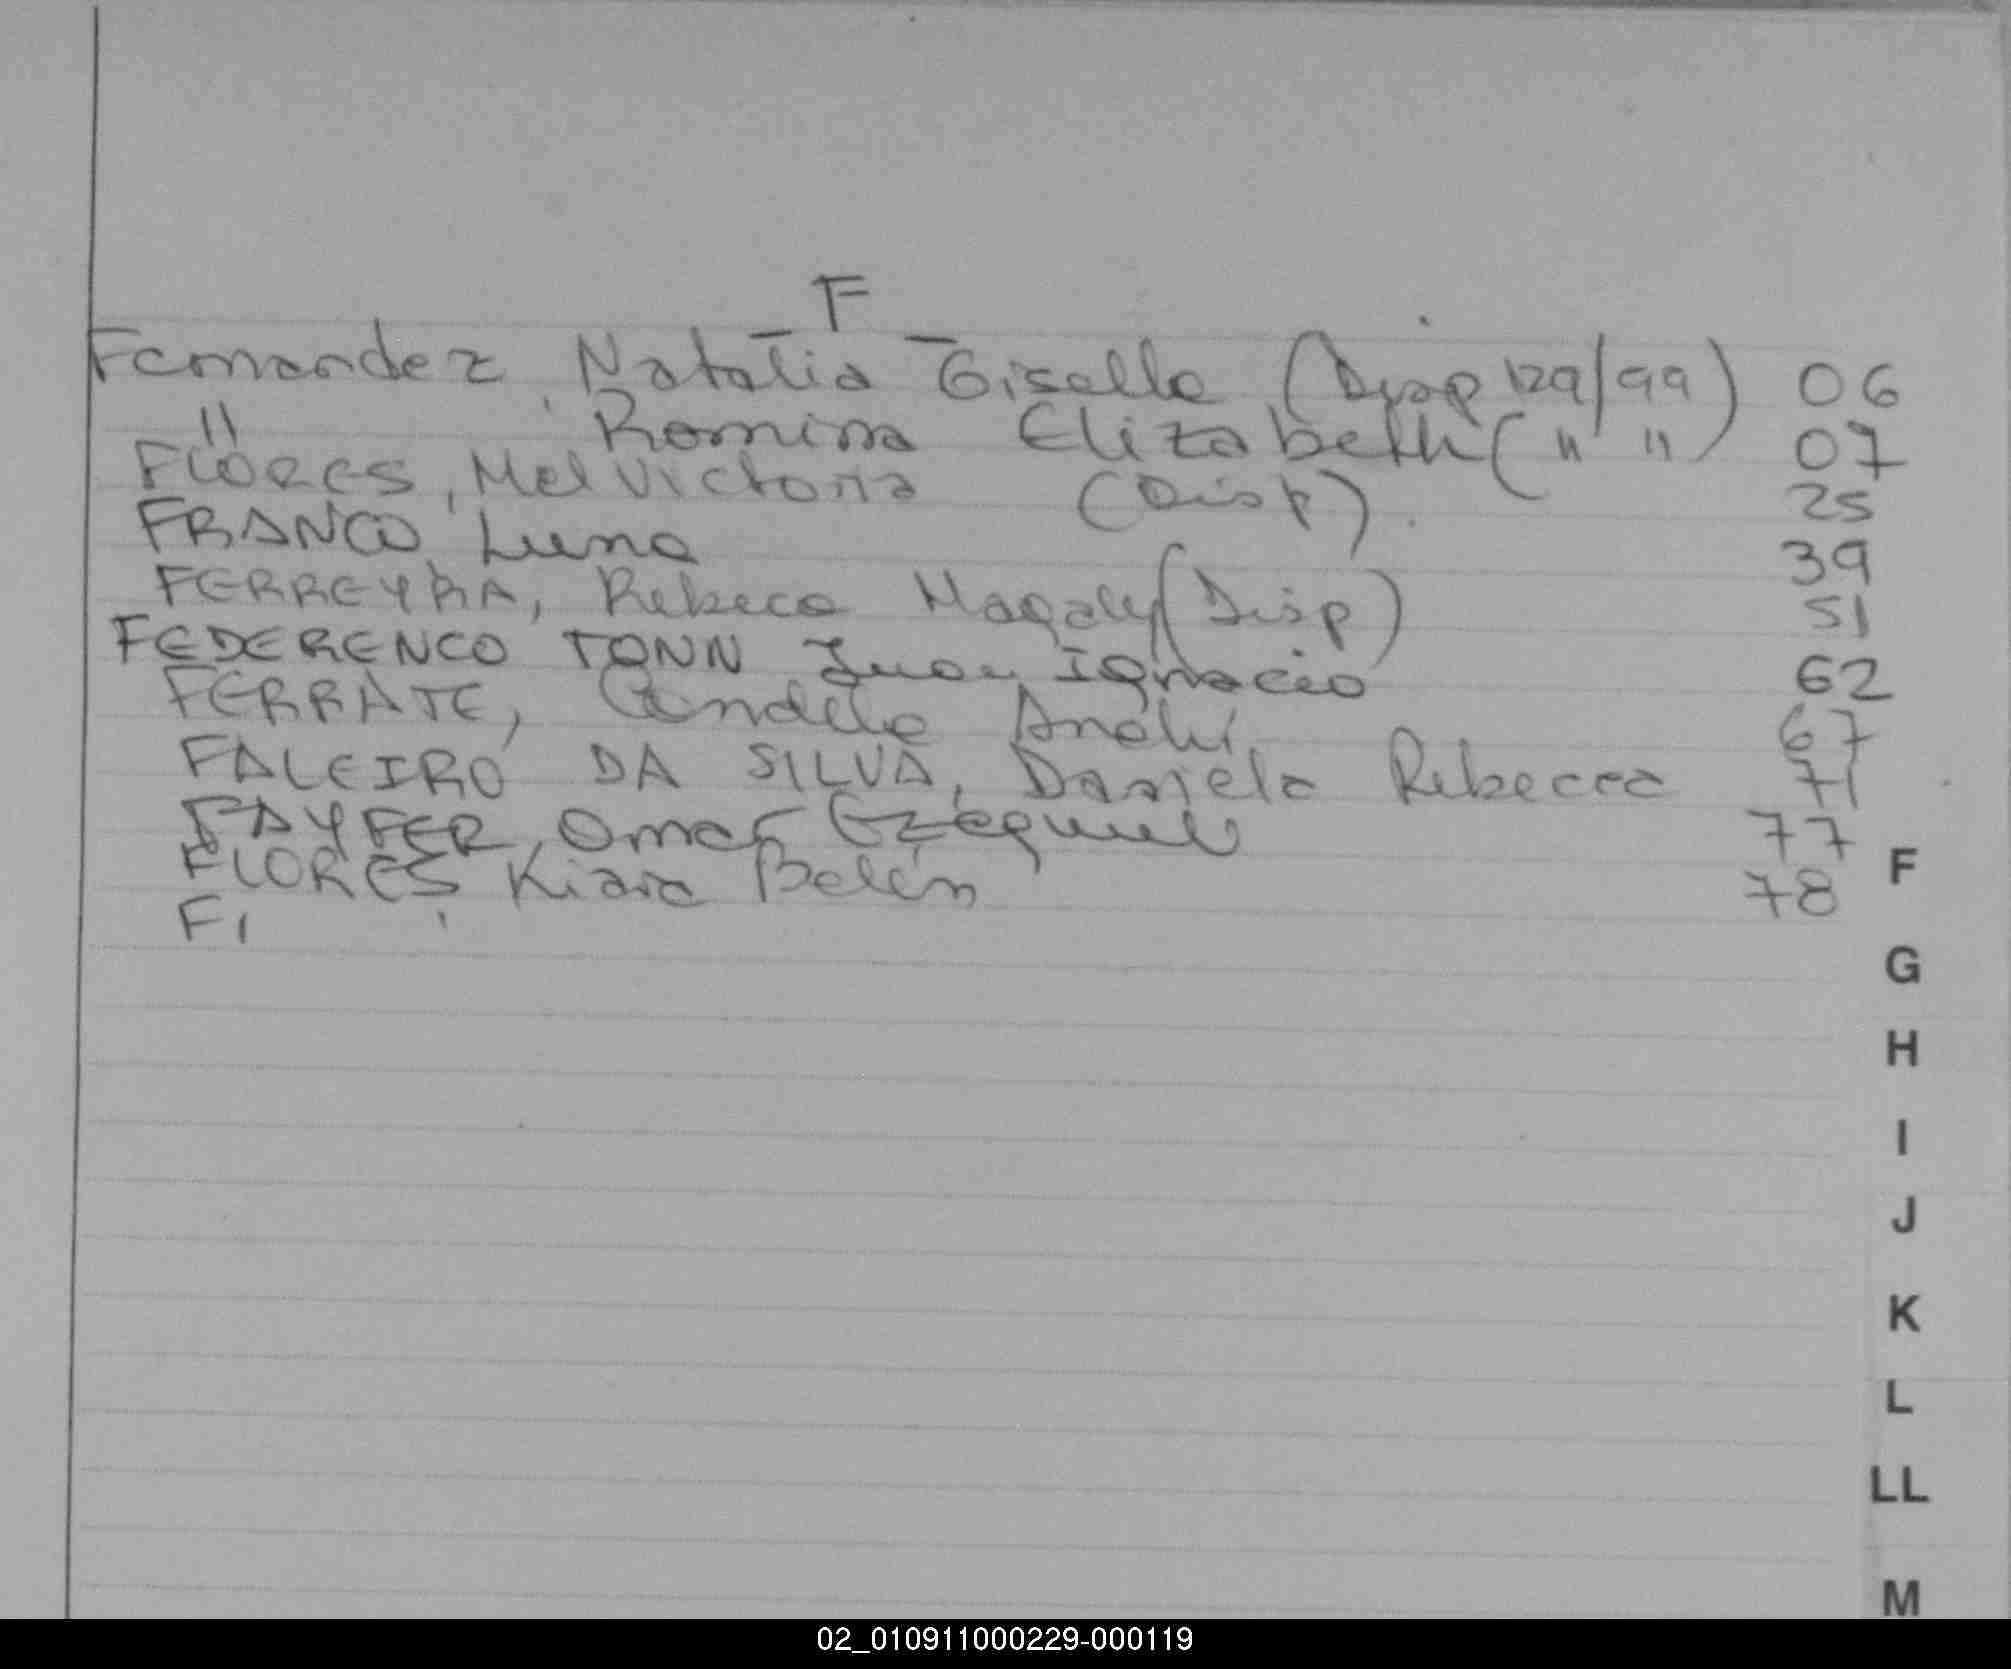 - F -
Fernandez, Natalia Giselle (Disp 129/99) 06
" Romina Elizabeth ( " " ) 07
FLORES, Mel Victoria (Disp). 25
FRANCO, Luna 39
FERREYRA, Rebeca Magaly (Disp) 51
FEDERENCO TONN Juan Ignacio 62
FERRATE, Candela Anahí 67
FALEIRO DA SILVA, Daniela Rebecca 71
FAYFER, Omar Ezequiel 77
FLORES, Kiara Belén 78
F
F
G
H
I
J
K
L
LL
M
02_010911000229-000119